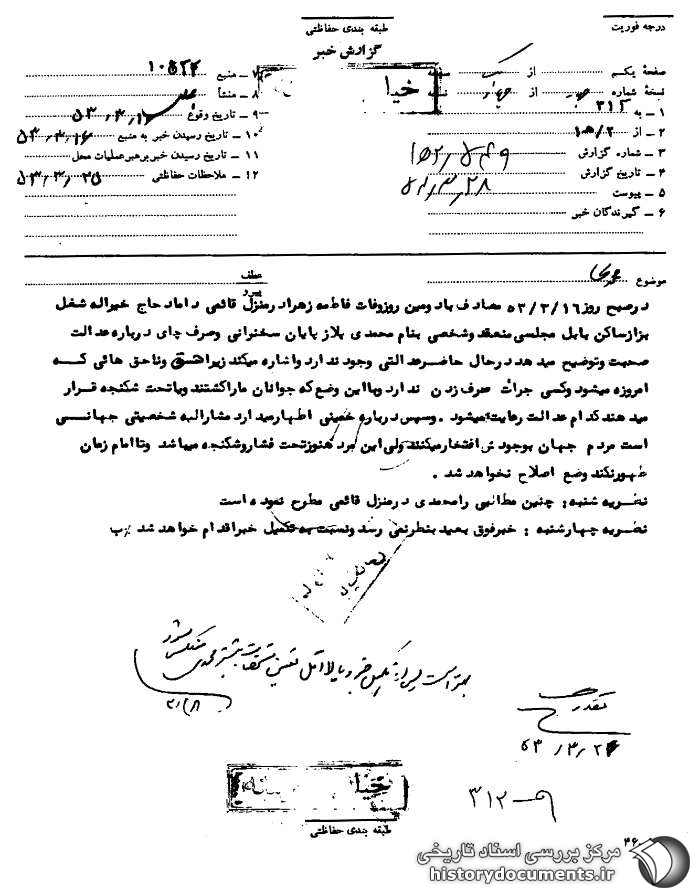 درجه فوریت
طبقه بندی حفاظتی
گزارش خبر
صفحهٔ یکم از یک صفحه
نسخهٔ شماره چهار از چهار نسخه
۱ – به ۳۱۲
۲ – از ۱۰ه/۲
۳ – شماره گزارش
۴ – تاریخ گزارش
۵ – پیوست
۶ – گیرندگان خبر
۷ – منبع
۸ – منشأ
۹ – تاریخ وقوع ۵۳٫۳٫۱۶
۱۰ – تاریخ رسیدن خبر به منبع ۵۳٫۳٫۱۶
۱۱ – تاریخ رسیدن خبر برهبر عملیات محل
۱۲ – ملاحظات حفاظتی ۵۳٫۳٫۲۵
موضوع
عطف
پیرو
در صبح روز ۵۳/۳/۱۶ مصادف با دومین روز وفات فاطمه زهرا در منزل قائمی داماد حاج خیراله شغل
بزاز ساکن بابل مجلسی منعقد و شخصی بنام محمدی بلا ز پایان سخنرانی و صرف چای درباره عدالت
صحبت و توضیح میدهد در حال حاضر عدالتی وجود ندارد و اشاره میکند زیرا حق و ناحق هائی که
امروزه میشود و کسی جرأت حرف زدن ندارد و با این وضع که جوانان ما را کشتند و یا تحت شکنجه قرار
میدهند کدام عدالت رعایت میشود . و سپس درباره خمینی اظهار میدارد مشارالیه شخصیتی جهانی
است مردم جهان بوجودش افتخار میکنند ولی این مرد هنوز تحت فشار و شکنجه میباشد و تا امام زمان
ظهور نکند وضع اصلاح نخواهد شد .
نظریه شنبه : چنین مطالبی را محمدی در منزل قائمی مطرح نموده است
نظریه چهارشنبه : خبر فوق بعید بنظر نمی رسد و نسبت به تکمیل خبر اقدام خواهد شد
۵۳٫۳٫۲۶
۳۱۲
طبقه بندی حفاظتی
مرکز بررسی اسناد تاریخی
historydocuments.ir